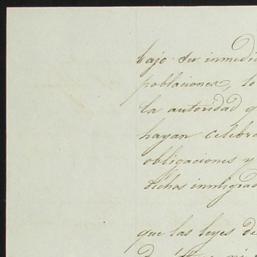 bajo su inmedia
poblaciones, lo
la autoridad q
hayan celebra
obligaciones y
dichos inmigrad
que las leyes de